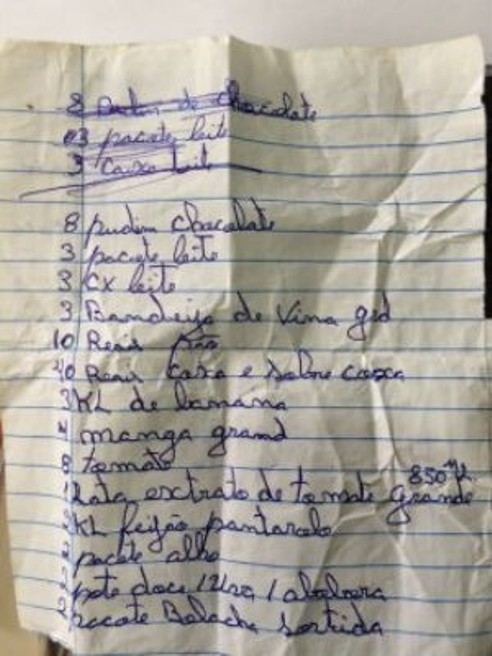 8 pudim de chocolate
03 pacote leite
3 Caixa leite
8 pudim chacalate
3 pacote leite
3 Cx leite
3 Bandeija de Vina grd
10 Reais pão
40 Reais Caxa e sobre coxa
3 KL de banana
4 manga grand
8 tomate
850
1 Lata extrato de tomate Grande
2 KL feijão
2 pacote alho
2 pote doce 1 abobora
2 pacote Bolacha sortida